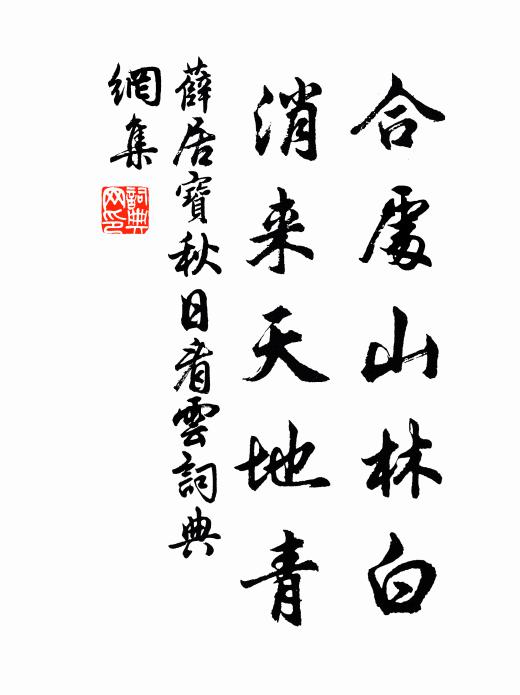 合處山林白
消来天地青
薛居寶秋日看雲詞典
網集
詞典
网印